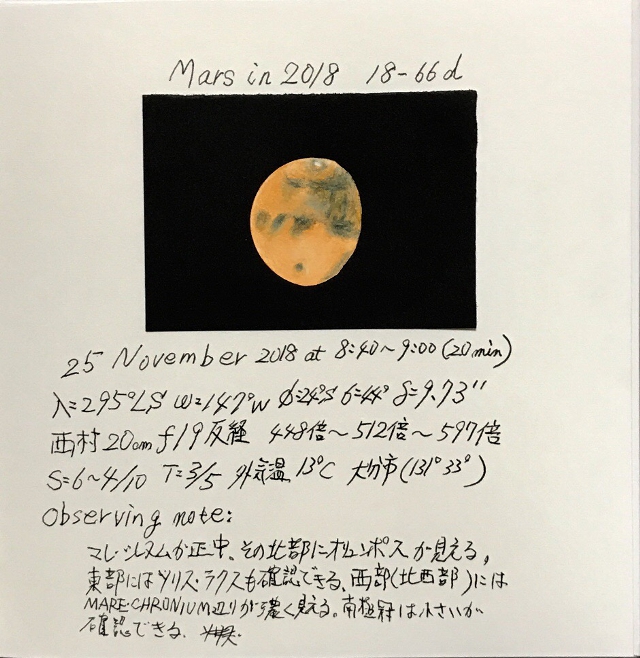 Mars in 2018 18-66d
25 November 2018 at 8:40~9:00 (20min)
λ=295°LS ω=147°W φ=24°S 6=44° δ=9.73"
西村20cm f19反経 448倍~512倍~597倍
S=6~4/10 T=3/5 外気温 13°C 大分市(131°33°)
Observing note:
マレ・シレヌムが正中、その北部にオリュンポスが見える。
東部にはソリス・ラクスも確認できる、西部(北西部)には
MARE・CHRONIUM辺りが濃く見える。南極冠は小さいが
確認できる。